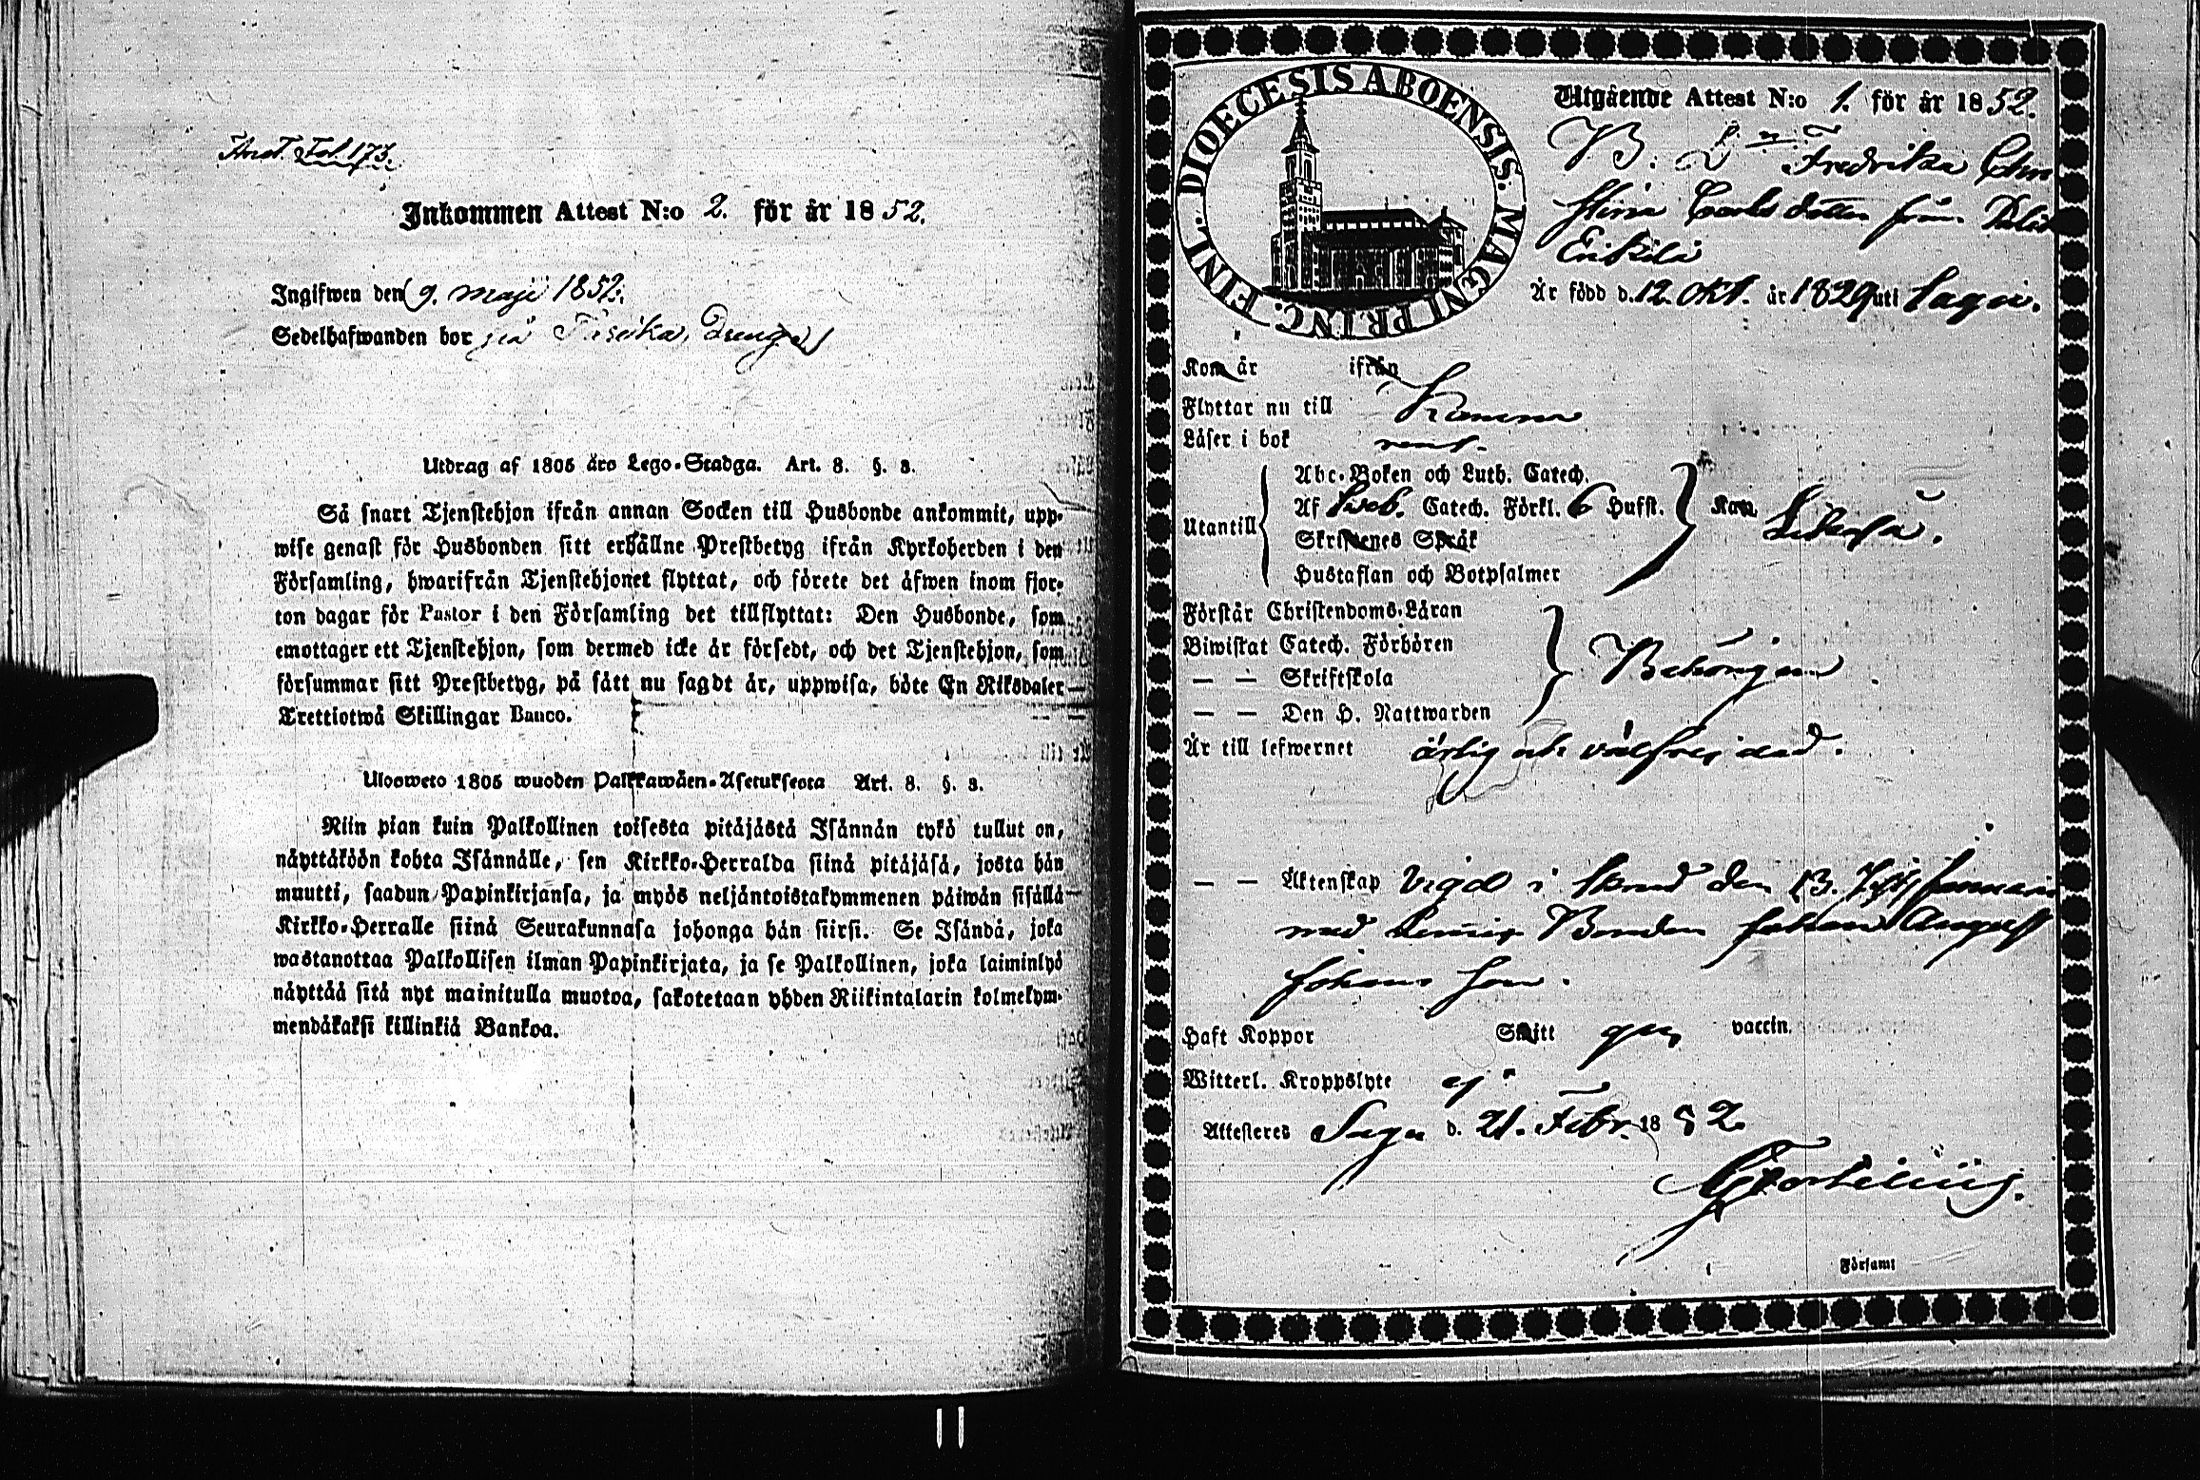 Anot. Fol. 173.
Inkommen Attest N:o 2. för år 1852.
Ingifwen den 9. maji 1852.
Sedelhafwanden bor på
Utdrag af 1805 års Lego-Stadga. Art. 8. §. 3.
Så snart Tjenstehjon ifrån annan Socken till Husbonde ankommit, upp-
wise genast för Husbonden sitt erhållne Prestbetyg ifrån Kyrkoherden i den
Församling, hwarifrån Tjenstehjonet flyttat, och förete det äfwen inom fjor-
ton dagar för Pastor i den Församling det tillflyttat: Den Husbonde, som
emottager ett Tjenstehjon, som dermed icke är försedt, och det Tjenstehjon, som
försummar sitt Prestbetyg, på sätt nu sagdt är, uppwisa, böte En Riksdaler
Trettiotwå Skillingar Banco.
Ulosweto 1805 wuoden Palkkawäen-Asetuksesta Art. 8. §. 3.
Niin pian kuin Palkollinen toisesta pitäjästä Isännän tykö tullut on,
näyttäköön kohta Isännälle, sen Kirkko-Herralda siinä pitäjäsä, josta hän
muutti, saadun Papinkirjansa, ja myös neljäntoistakymmenen päiwän sisällä
Kirkko-Herralle siinä Seurakunnasa johonga hän siirsi. Se Isändä, joka
wastanottaa Palkollisen ilman Papinkirjata, ja se Palkollinen, joka laiminlyö
näyttää sitä nyt mainitulla muotoa, sakotetaan yhden Riikintalarin kolmekym-
mendäkaksi killinkiä Bankoa.
DIOECESIS ABOENSIS. MAGNI PRINC. FINL.
Utgående Attest N:o 1. för år 1852.
B. D:n Fredrika Chri
stina Carlsdotter från
Är född d. 12 Okt. år 1829 uti Sagu.
Kom år ifrån
Flyttar nu till
Läser i bok rent.
Utantill
Abc-Boken och Luth. Catech.
Af Sweb. Catech. Förkl. 6 Hufst.
Skriftenes Språk
Hustaflan och Botpsalmer
Kan
Förstår Christendoms-Läran
Biwistat Catech. Förhören
— — Skriftskola
— — Den H. Nattwarden
Behörigen
Är till lefwernet ärlig och välfrejdad.
— — Äktenskap Vigd i den 13. Januarii
med Bonden Johan August
Johans Son.
Haft Koppor Smitt gm vaccin.
Witterl. Kroppslyte ej
Attesteres Sagu d. 21. Febr. 1852.
Församl